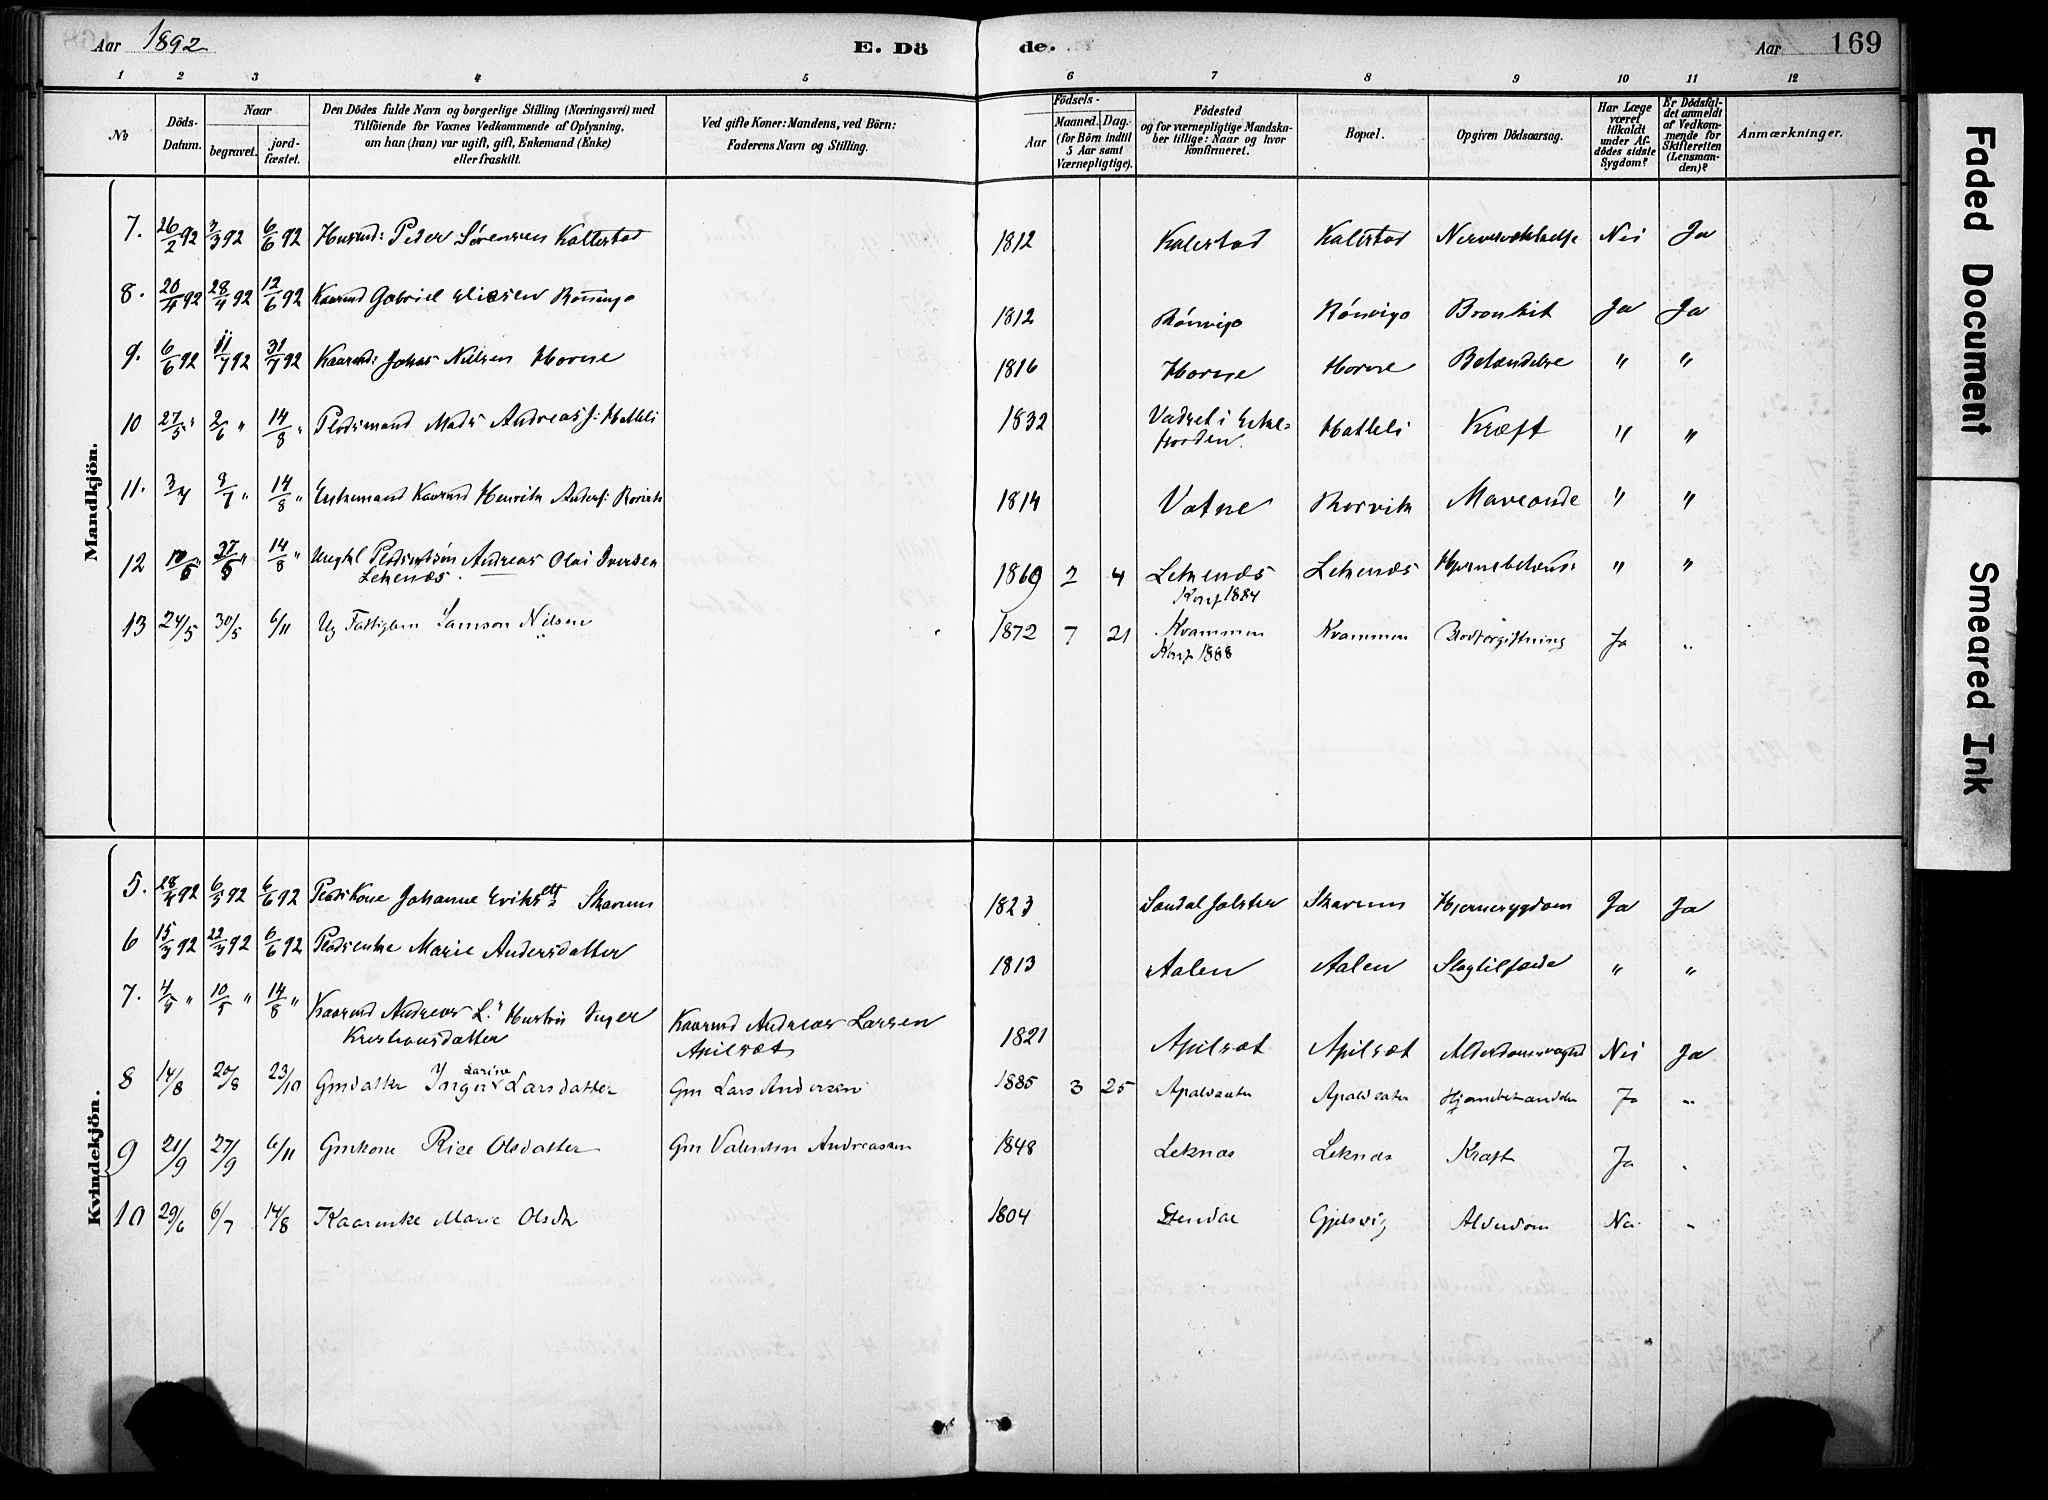 Aar 1892
E. Dö
de.
Aar
169
1 2 3 4 5 6 7 8 9 10 11 12
No
Döds-Datum.
Naar
begravet.
jord-fæstet.
Den Dödes fulde Navn og borgerlige Stilling (Næringsvei) med
Tilföiende for Voxnes Vedkommende af Oplysning,
om han (hun) var ugift, gift, Enkemand (Enke)
eller fraskilt.
Ved gifte Koner: Mandens, ved Börn:
Faderens Navn og Stilling.
Födsels-
Aar
Maaned. Dag.
(for Börn indtil
5 Aar samt
Værnepligtige).
Födested
og for værnepligtige Mandska-
ber tillige: Naar og hvor
konfirmeret.
Bopæl.
Opgiven Dödsaarsag.
Har Læge
været
tilkaldt
under Af-
dödes sidste
Sygdom?
Er Dödsfal-
det anmeldt
af Vedkom-
mende for
Skifteretten
(Lensman-
den)?
Anmærkninger.
Mandkjön.
7. 26/2 92 3/3 92 6/6 92 Husmd: Peder Sørensen Kallestad 1812 Kalestad Kalestad Nei Ja
8. 20/4 92 28/4 92 12/6 92 Kaarmd Gabriel Eliasen 1812 Rønvigo Bronkit Ja Ja
9. 6/6 92 11/7 92 31/7 92 Kaarmd: Johas Nielsen Horne 1816 Horne Horne Betændelse " "
10 27/5 " 2/6 " 14/8 " Pladsmand Mads Andreass: Hatleli 1832 Vadset i Eikefjorden. Hatleli Kræft " "
11. 9/7 " 14/8 " Enkemand Kaarmd Henrik Anders: 1814 Vatne Rorvik Maveonde " "
12 14/8 " Ungkl Pladsmdsøn Andreas Olai Iversen
Leknæs. 1869 2 4 Leknæs Leknæs " "
Konf 1884
13 24/5 30/5 6/11 Ug Fattiglem Samson Nilsen 1872 7 21 Kvammen Kvammen Blodforgiftning Ja "
Konf 1888
Kvindekjön.
5. 28/4 92 6/5 92 6/6 92 Pladskone Johanne Eriksdtr Skarum 1823 Sandal Jolster Skarum Hjernesygdom Ja Ja
6 15/3 92 22/3 92 6/6 92 Pladsenke Marie Andersdatter 1813 Aalen Aalen Slagtilfælde " "
7. " 10/5 " 14/8 " Kaarmd Andreas L.s Hustru Inger
Kristiansdatter Kaarmd Andreas Larsen
Apilsæt 1821 Apilsæt Apilsæt Nei Ja
8 14/8 20/8 23/10 Gmdatter Inger Larine Larsdatter Gm Lars Andersen 1885 3 25 Apaldsæter Apaldsæter Ja "
9 21/9 27/9 6/11 Gmkone Rise Olsdatter Gm Valentin Andreasen 1848 Leknæs Leknæs Kræft Ja "
10 29/6 6/7 14/8 Kaarenke Marie Olsdtr 1804 Stendal Gjelsvig Alderdom Nei "
Faded Document
Smeared Ink